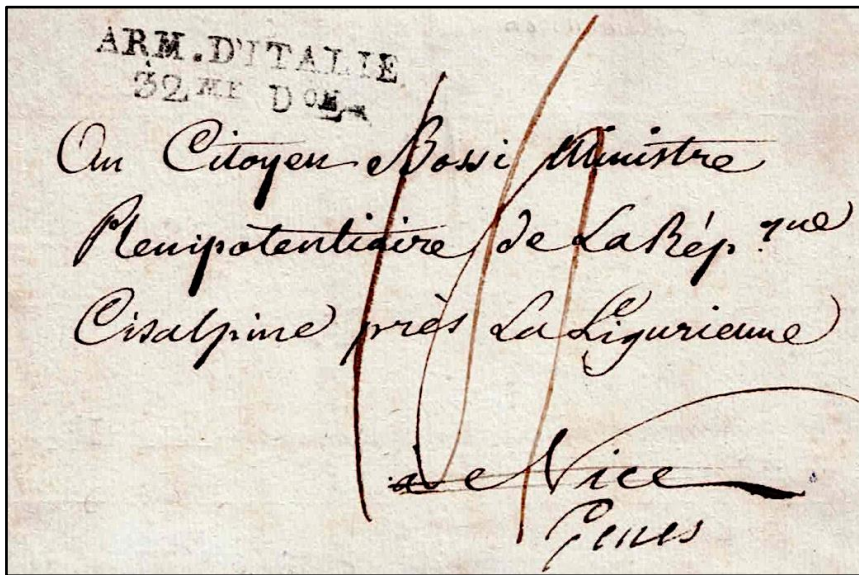 ARM. D'ITALIE
32ME DON
Au Citoyen Bossi Ministre
Plenipotentiaire de La Rép.que
Cisalpine près La Ligurienne
à Nice
Genes